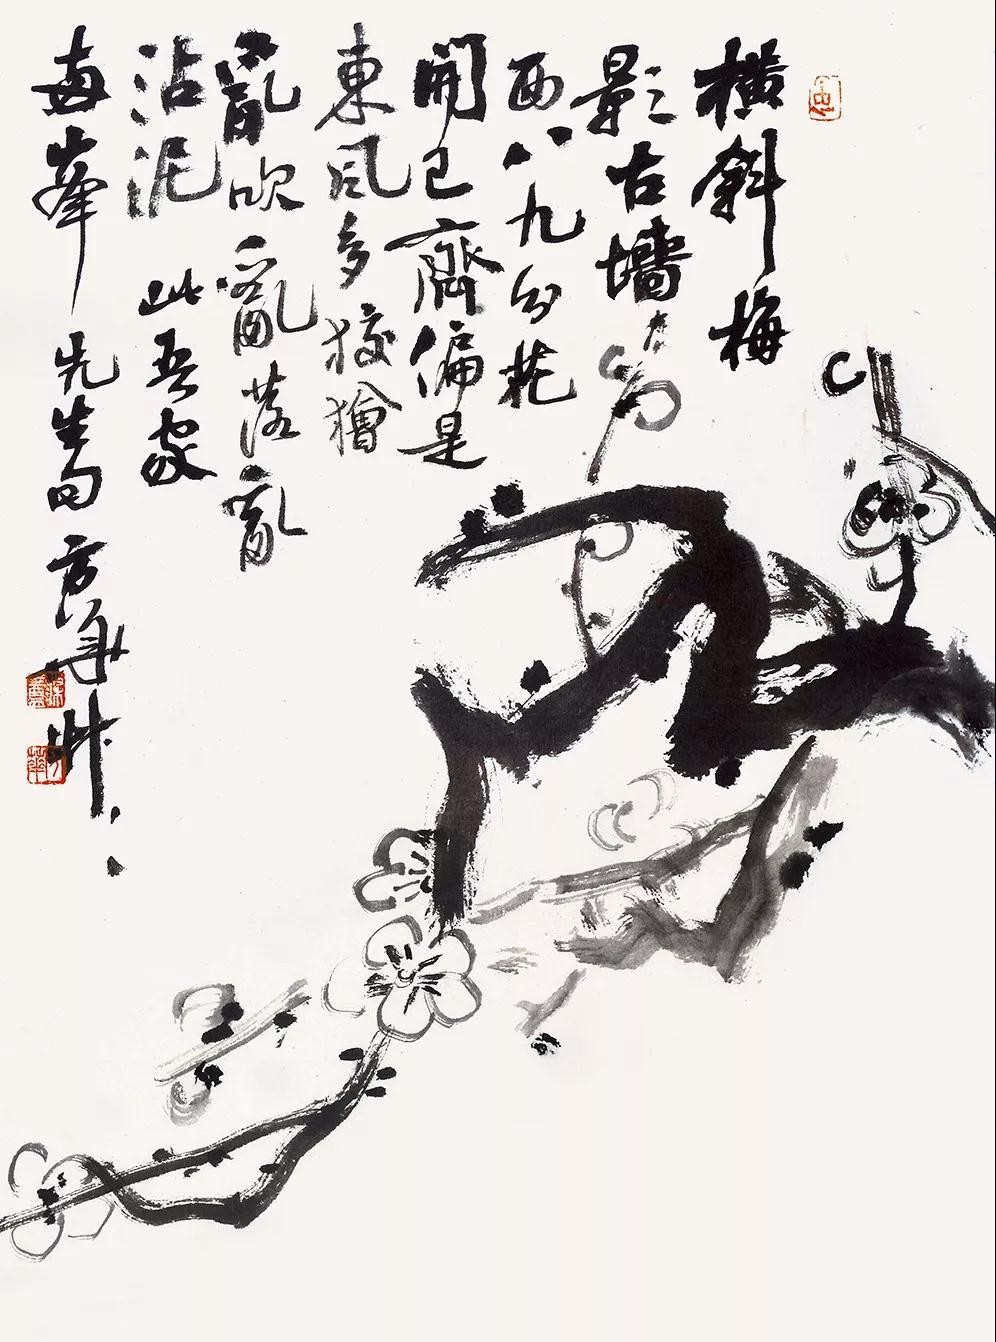 橫斜梅
影古墻
西八九分花
開已齊偏是
東風多狡獪
亂吹亂落亂
沾泥 此吾家
每峯先生句 方華艸